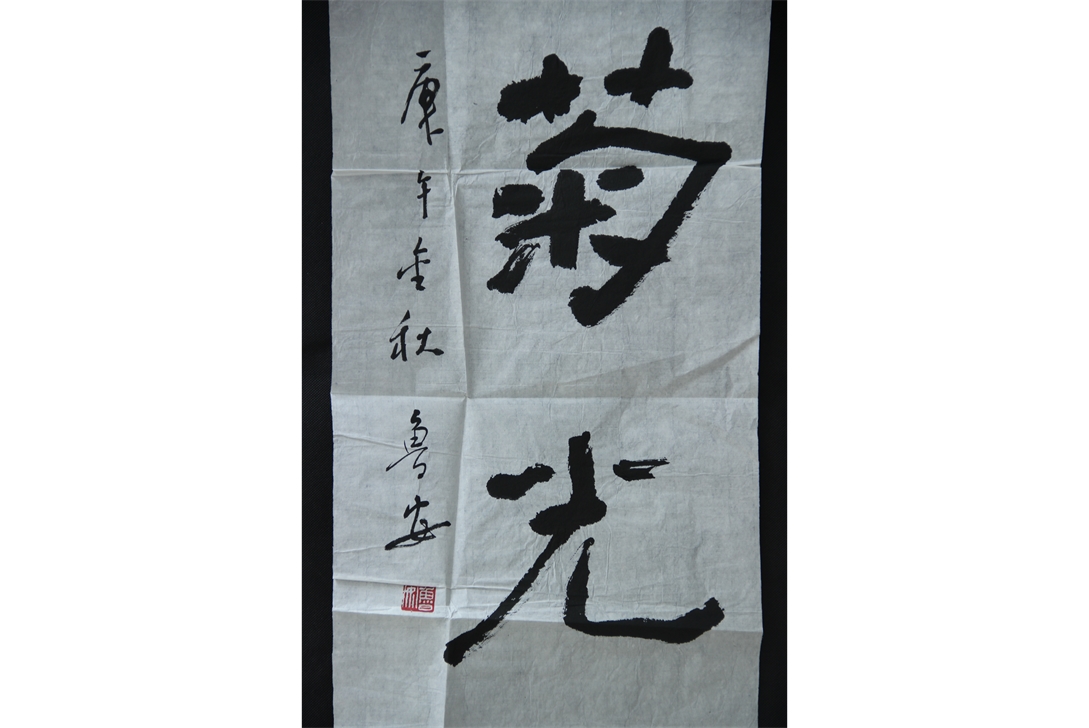 菊光
庚午金秋 鲁安